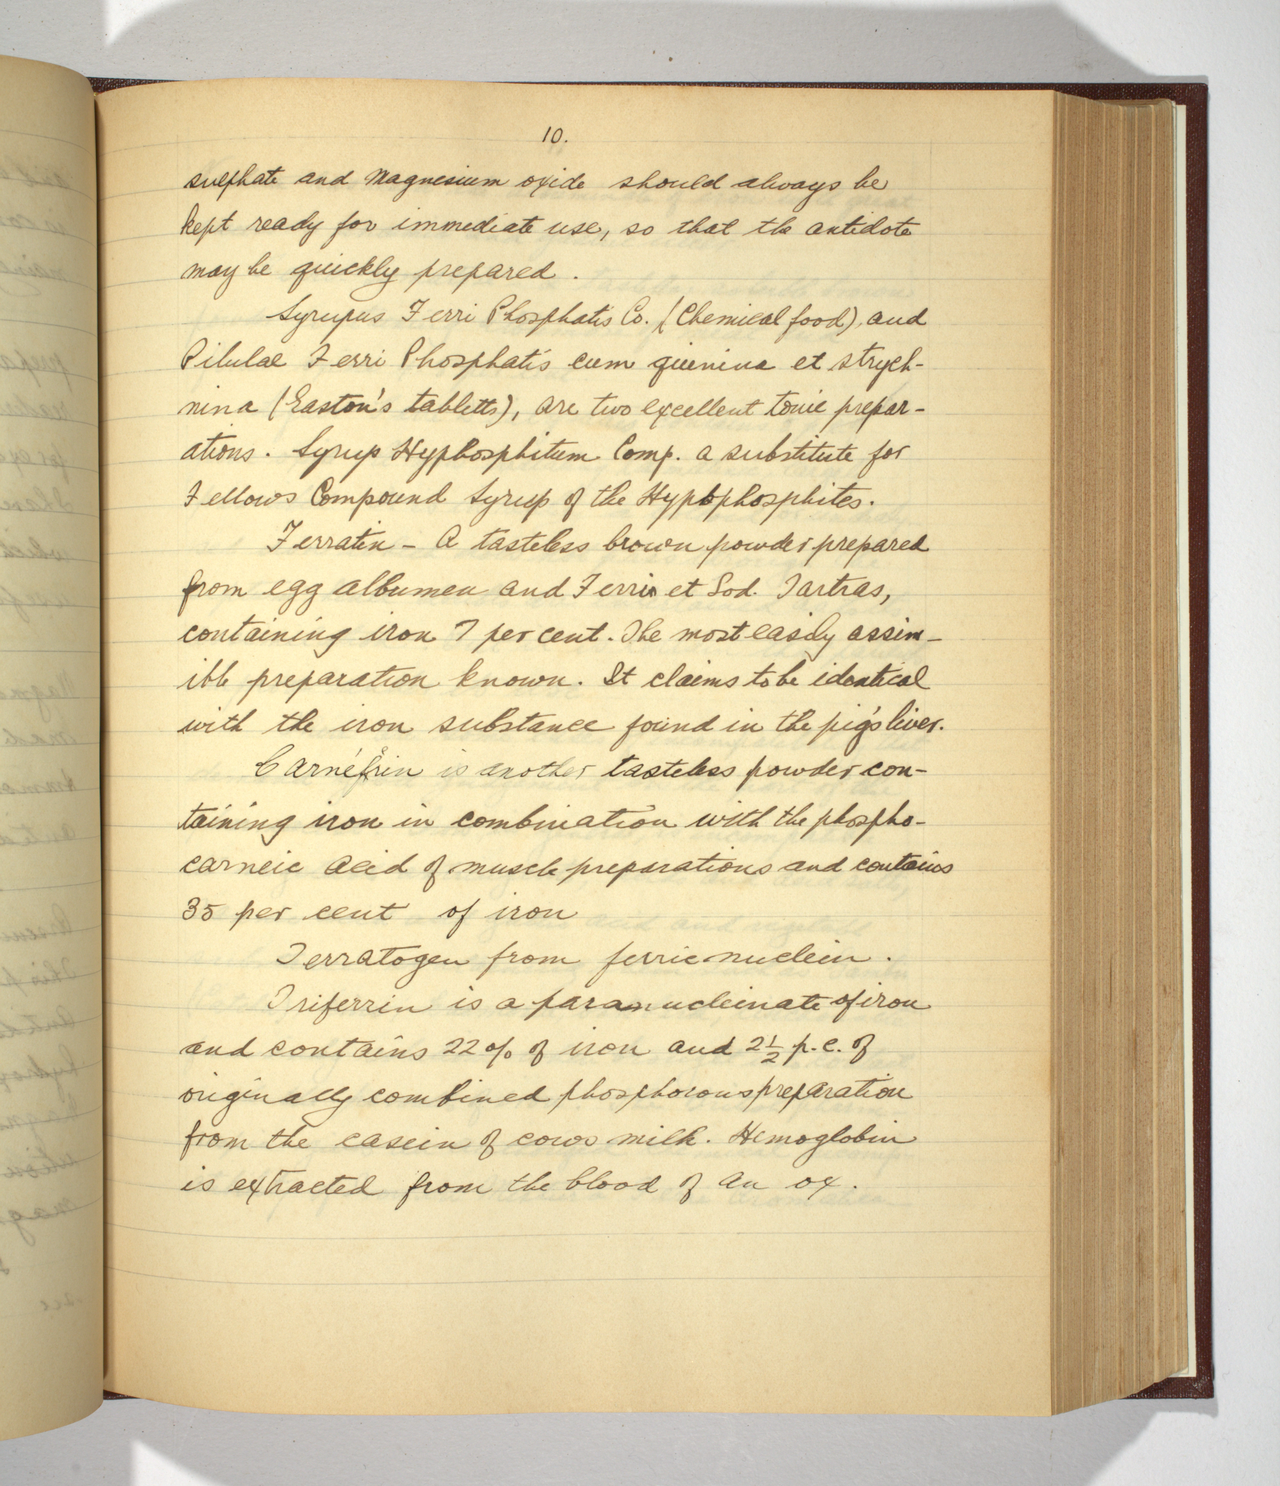 10.
sulphate and Magnesium oxide should always be
kept ready for immediate use, so that the antidote
may be quickly prepared.
Syrupus Ferri Phosphatis Co. (Chemical food), and
Pilulae Ferri Phosphatis cum quinina et strych-
nina (Easton's tabletts), are two excellent tonic prepar-
ations. Syrup Hyphosphitum Comp. a substitute for
Fellows Compound Syrup of the Hypophosphites.
Ferratin - A tasteless brown powder prepared
from egg albumen and Ferri et Sod. Tartras,
containing iron 7 per cent. The most easily assim-
ible preparation known. It claims to be identical
with the iron substance found in the pig's liver.
Carneferrin is another tasteless powder con-
taining iron in combination with the phospho-
carneic acid of muscle preparations and contains
35 per cent of iron
Ferratogen from ferric nuclein.
Triferrin is a paranucleinate of iron
and contains 22% of iron and 2½ p.c. of
originally combined phosphorous preparation
from the casein of cows milk. Hemoglobin
is extracted from the blood of an ox.